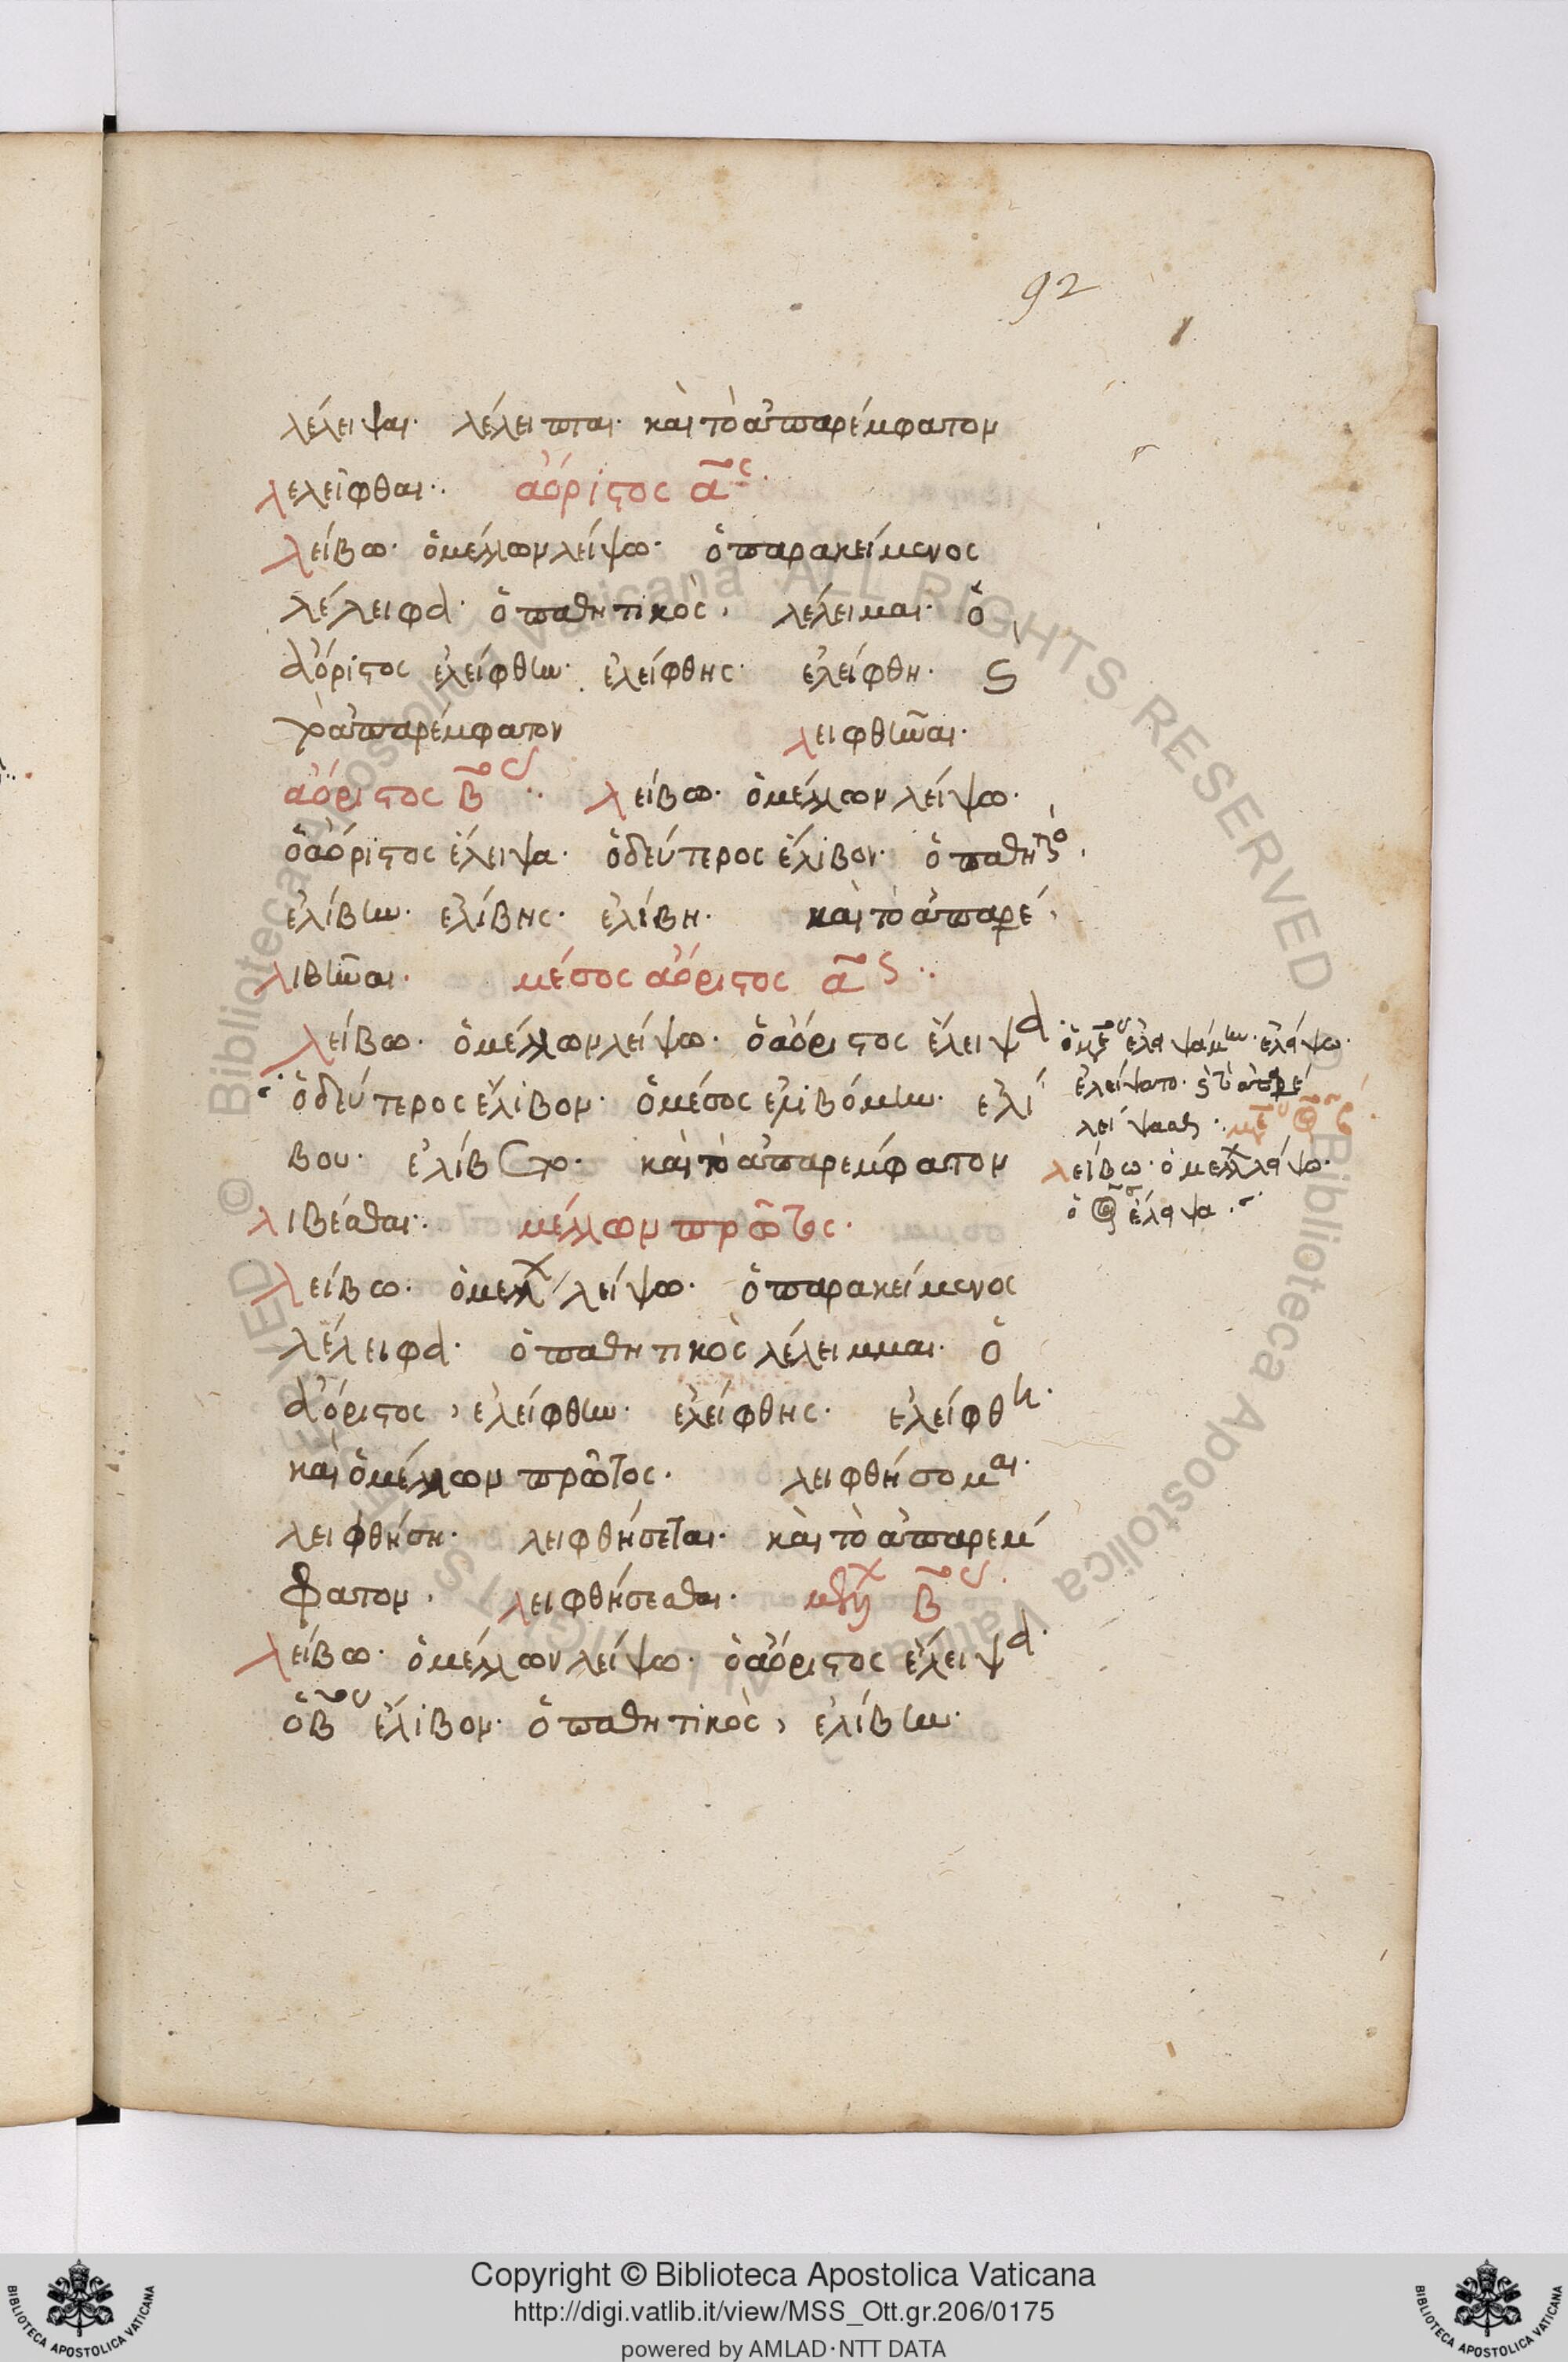 92
λέλειψαι· λέλειπται· καὶ τὸ ἀπαρέμφατον
λελεῖφθαι·. ἀόριστος α^ος·
λείβω· ὁ μέλλων λείψω· ὁ παρακείμενος
λέλειφα· ὁ παθητικὸς, λέλειμαι· ὁ
ἀόριστος ἐλείφθην· ἐλείφθης· ἐλείφθη· ϛ
τὸ ἀπαρέμφατον λειφθῆναι·
ἀόριστος β^ος ·· λείβω· ὁ μέλλων λείψω·
ὁ ἀόριστος ἔλειψα· ὁ δεύτερος ἔλιβον· ὁ παθητικὸ,
ἐλίβην· ἐλίβης· ἐλίβη· καὶ τὸ ἀπαρέ,
λιβῆναι· μέσος ἀόριστος α^ος ··
λείβω· ὁ μέλλων λείψω· ὁ ἀόριστος ἔλειψα·
ὁ δεύτερος ἔλιβον· ὁ μέσος ἐλιβόμην· ἐλί
βου· ἐλίβετο· καὶ τὸ ἀπαρέμφατον
λιβέσθαι·. μέλλων πρῶτος·
λείβω· ὁ μελλ λείψω· ὁ παρακείμενος
λέλειφα· ὁ παθητικὸς λέλειμμαι· ὁ
ἀόριστος, ἐλείφθην· ἐλείφθης· ἐλείφθη·
καὶ ὁ μέλλων πρῶτος· λειφθήσομαι·
λειφθήσῃ· λειφθήσεται· καὶ τὸ ἀπαρέμ
φατον, λειφθήσεσθαι· β^ος·
λείβω· ὁ μέλλων λείψω· ὁ ἀόριστος ἔλειψα·
ὁ β^ος ἔλιβον· ὁ παθητικὸς, ἐλίβην·
ὁ μέσος ἐλειψάμην· ἐλείψω·
ἐλείψατο· ϛ τὸ ἀπαρέ
λείψασθαι·
λείβω· ὁ μελλ λείψω·
ὁ ἔλειψα·
Copyright © Biblioteca Apostolica Vaticana
http://digi.vatlib.it/view/MSS_Ott.gr.206/0175
powered by AMLAD·NTT DATA